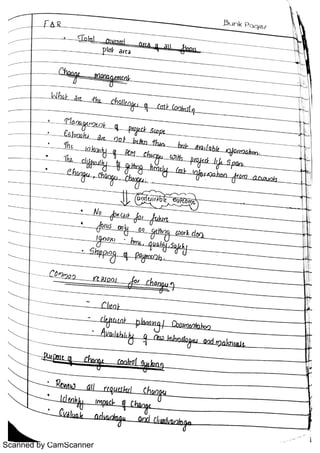 FAR
Bunk Pages
Total area of all floors
plot area
Change management
What are the challenges of cost control
• Management of project scope
• Estimates are not better than best available information.
• The intensity of changes with project life span
• The difficulty of getting timely cost information from accounts
• Changes, changes, changes.
Undesirable outcome
• No for future
• focus only on getting work done
ignore - time, quality, safety
- Stopping of payments.
Common reasons for changes
- Client
- planning / Documentation
- Availability of new technologies and materials
purpose of change control system
• Review all requested changes
• Identify impact of change
• Evaluate advantage and disadvantage
Scanned by CamScanner